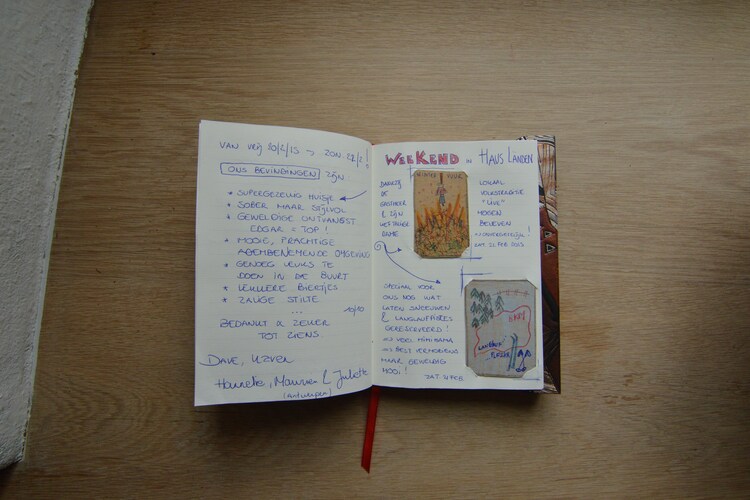 VAN VRIJ 20/2/15 → ZON 22/2!
ONS BEVINDINGEN ZIJN
* SUPERGEZELLIG HUISJE
* SOBER MAAR STIJLVOL
* GEWELDIGE ONTVANGST
EDGAR = TOP!
* MOOIE, PRACHTIGE
ADEMBENEMENDE OMGEVING
* GENOEG LEUKS TE
DOEN IN DE BUURT
* LEKKERE BIERTJES
* ZALIGE STILTE
...
10/10
BEDANKT & ZEKER
TOT ZIENS
DAVE,
Hanneke, Maureen & Juliette
(Antwerpen)
WEEKEND IN HAUS LÄNDEN
DANKZIJ
DE
GASTHEER
& ZIJN
LOKAAL
"LIVE"
MOGEN
BELEVEN
SPECIAAL VOOR
ONS NOG WAT
LATEN SNEEUWEN
& LANGLAUFPISTES
GERESERVEERD!
=> VEEL MINIMAMA
=> BEST VERMOEIEND
MAAR GEWELDIG
MOOI!